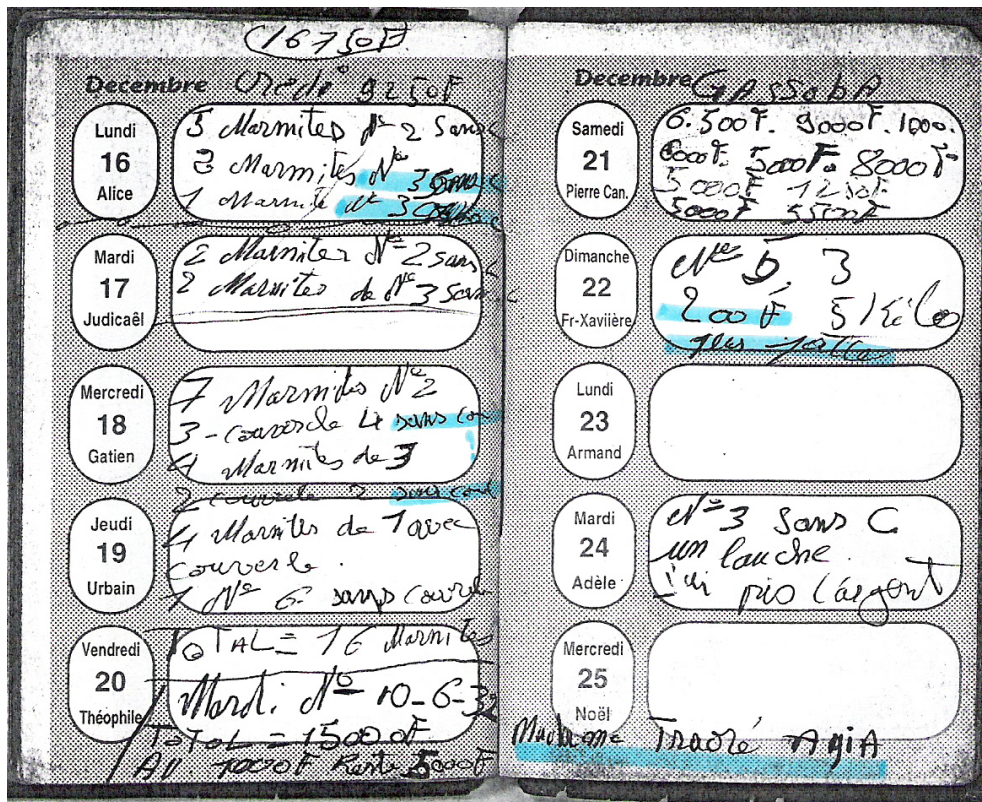 16750F
Decembre Credi 9250F
Lundi
16
Alice
5 Marmites N° 2 Sans
3 Marmites N° 3 Sans C
1 Marmite N° 3
Mardi
17
Judicaël
2 Marmites N° 2 sans
2 Marmites de N° 3 Sans
Mercredi
18
Gatien
7 Marmites N° 2
3 - couvercle 4 sans cou
4 Marmites de 3
2 couvercle 2 sans cou
Jeudi
19
Urbain
4 Marmites de 1 avec
couvercle.
1 N° 6 sans couvercle
Vendredi
20
Théophile
TOTAL = 16 Marmites
Mardi N° 10-6-32
TOTAL = 15000F
AV 7000F Reste 5000F
Decembre GASSABA
Samedi
21
Pierre Can.
6.500F. 9000F. 1000.
6000F. 5000F. 8000F
5000F 1250F
5000F 5500F
Dimanche
22
Fr-Xaviière
N° 5, 3
200F 5 Kiloo
Lundi
23
Armand
Mardi
24
Adèle
N° 3 Sans C
un lauche.
j'ai pris l'argent
Mercredi
25
Noël
Madame Traoré AgiA